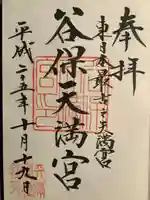 奉拝
東日本最古の天満宮
谷保天満宮
平成二十五年十月十九日